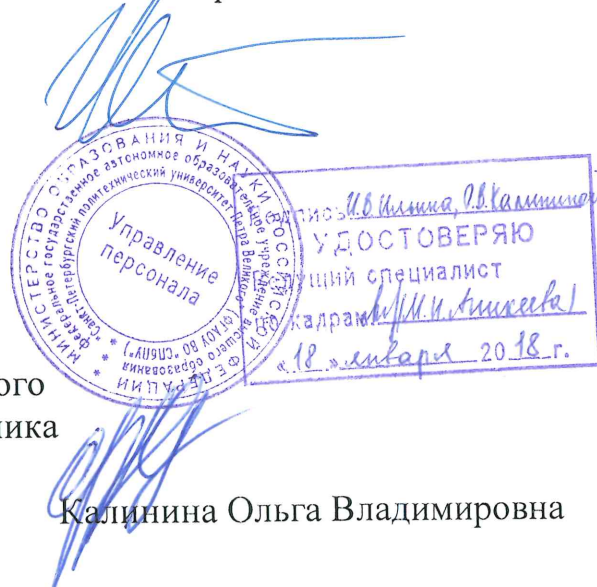 МИНИСТЕРСТВО ОБРАЗОВАНИЯ И НАУКИ РОССИЙСКОЙ ФЕДЕРАЦИИ
федеральное государственное автономное образовательное учреждение высшего образования
"Санкт-Петербургский политехнический университет Петра Великого" (ФГАОУ ВО "СПбПУ")
Управление
персонала
И.В. Ильина, О.В. Калининой
УДОСТОВЕРЯЮ
специалист
кадрам (М.И. Аникеева)
«18» января 2018 г.
ого
ика
Калинина Ольга Владимировна